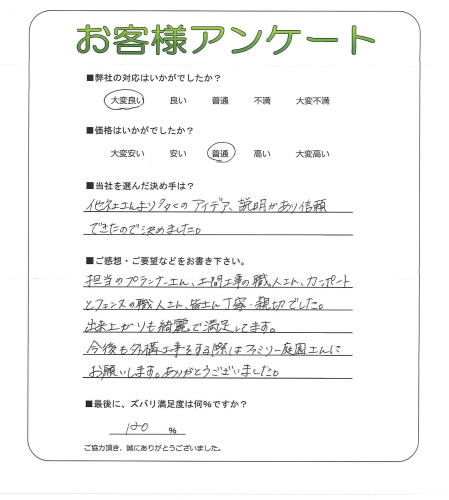 お客様アンケート
■弊社の対応はいかがでしたか?
大変良い 良い 普通 不満 大変不満
■価格はいかがでしたか?
大変安い 安い 普通 高い 大変高い
■当社を選んだ決め手は?
他社さんより多くのアイデア、説明があり信頼
できたので決めました。
■ご感想・ご要望などをお書き下さい。
担当のプランナーさん、土間工事の職人さん、カーポート
とフェンスの職人さん、皆さん丁寧・親切でした。
出来上がりも綺麗で満足してます。
今後も外構工事をする際はファミリー庭園さんに
お願いします。ありがとうございました。
■最後に、ズバリ満足度は何%ですか?
120 %
ご協力頂き、誠にありがとうございました。